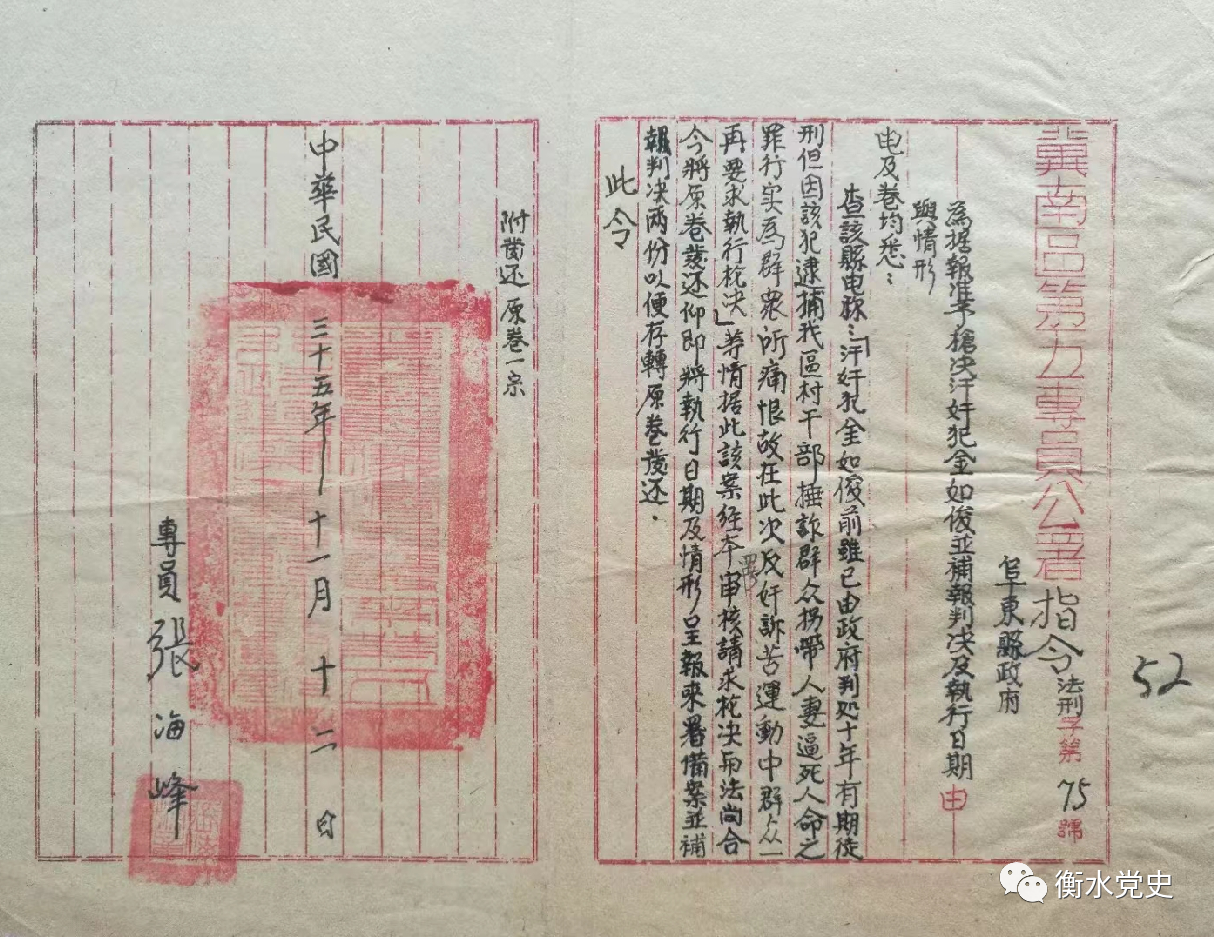 冀南區第五專員公署指令法刑字第75號
阜東縣政府
為据報准予槍决汗奸犯金如俊並補報判决及执行日期
與情形 由
电及卷均悉：
查該縣电称：「汗奸犯金如俊前雖已由政府判処十年有期徒
刑但因該犯逮捕我區村干部捶詐群众拐帶人妻逼死人命之
罪行实為群衆所痛恨故在此次反奸訴苦運動中群众一
再要求執行枪决」等情据此該案経本署審核請求枪决於法尚合
今將原卷發还仰即將執行日期及情形呈報來署備案並補
報判决兩份以便存轉原卷發还．
此令
附發还原卷一宗
中華民國三十五年十一月十二日
專員張海峰
52
衡水党史